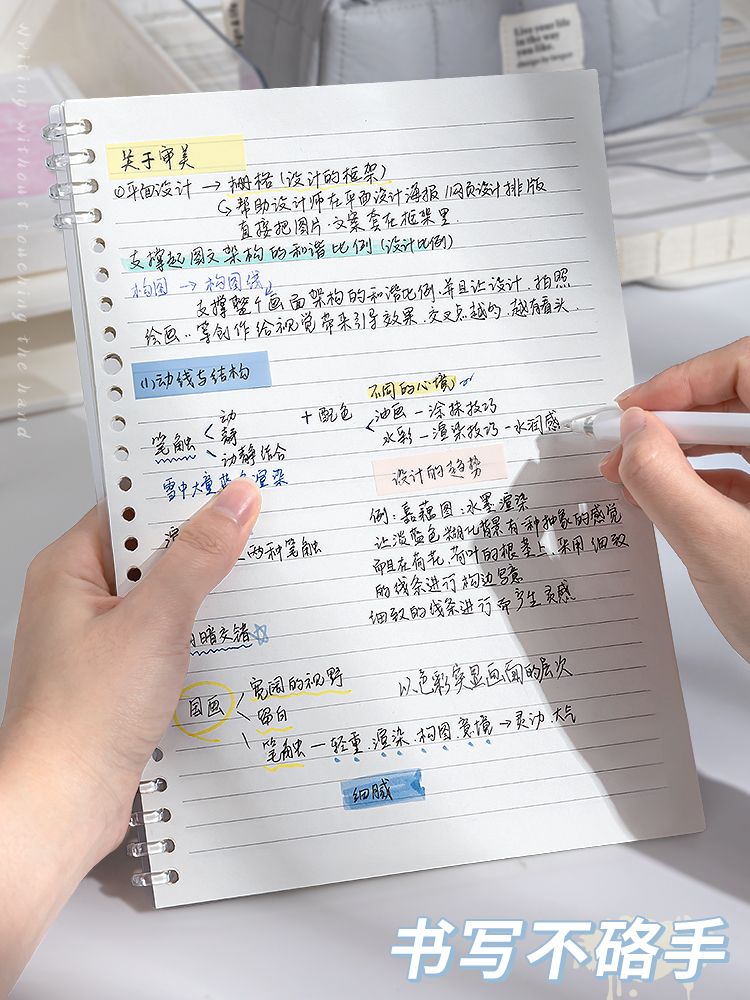 Live your life
in the way
you like.
writing without touching the hand
关于审美
(1)平面设计 → 栅格(设计的框架)
帮助设计师在平面设计海报 网页设计排版
直接把图片.文案套在框架里.
支撑起图文架构的和谐比例(设计比例)
构图 → 构图线
支撑整个画面架构的和谐比例.并且让设计.拍照
绘画..等创作给视觉带来引导效果.交叉点越多.越有看头.
(1)动线与结构
不同的心境
笔触 < 动 + 配色 < 油画 — 涂抹技巧
静 水彩 — 渲染技巧 - 水润感
动静结合
雪中大量蓝色渲染
设计的趋势
例.嘉藕图:水墨渲染
让淡蓝色糊化背景有一种抽象的感觉
两种笔触
而且在荷花.荷叶的根茎上.采用细致
的线条进行构边写意
细致的线条进行而产生灵感
暗交错☆
国画 < 宽阔的视野 以色彩突显画面的层次
留白
笔触 — 轻重.渲染.构图.意境 → 灵动.大气
细腻
书写不硌手